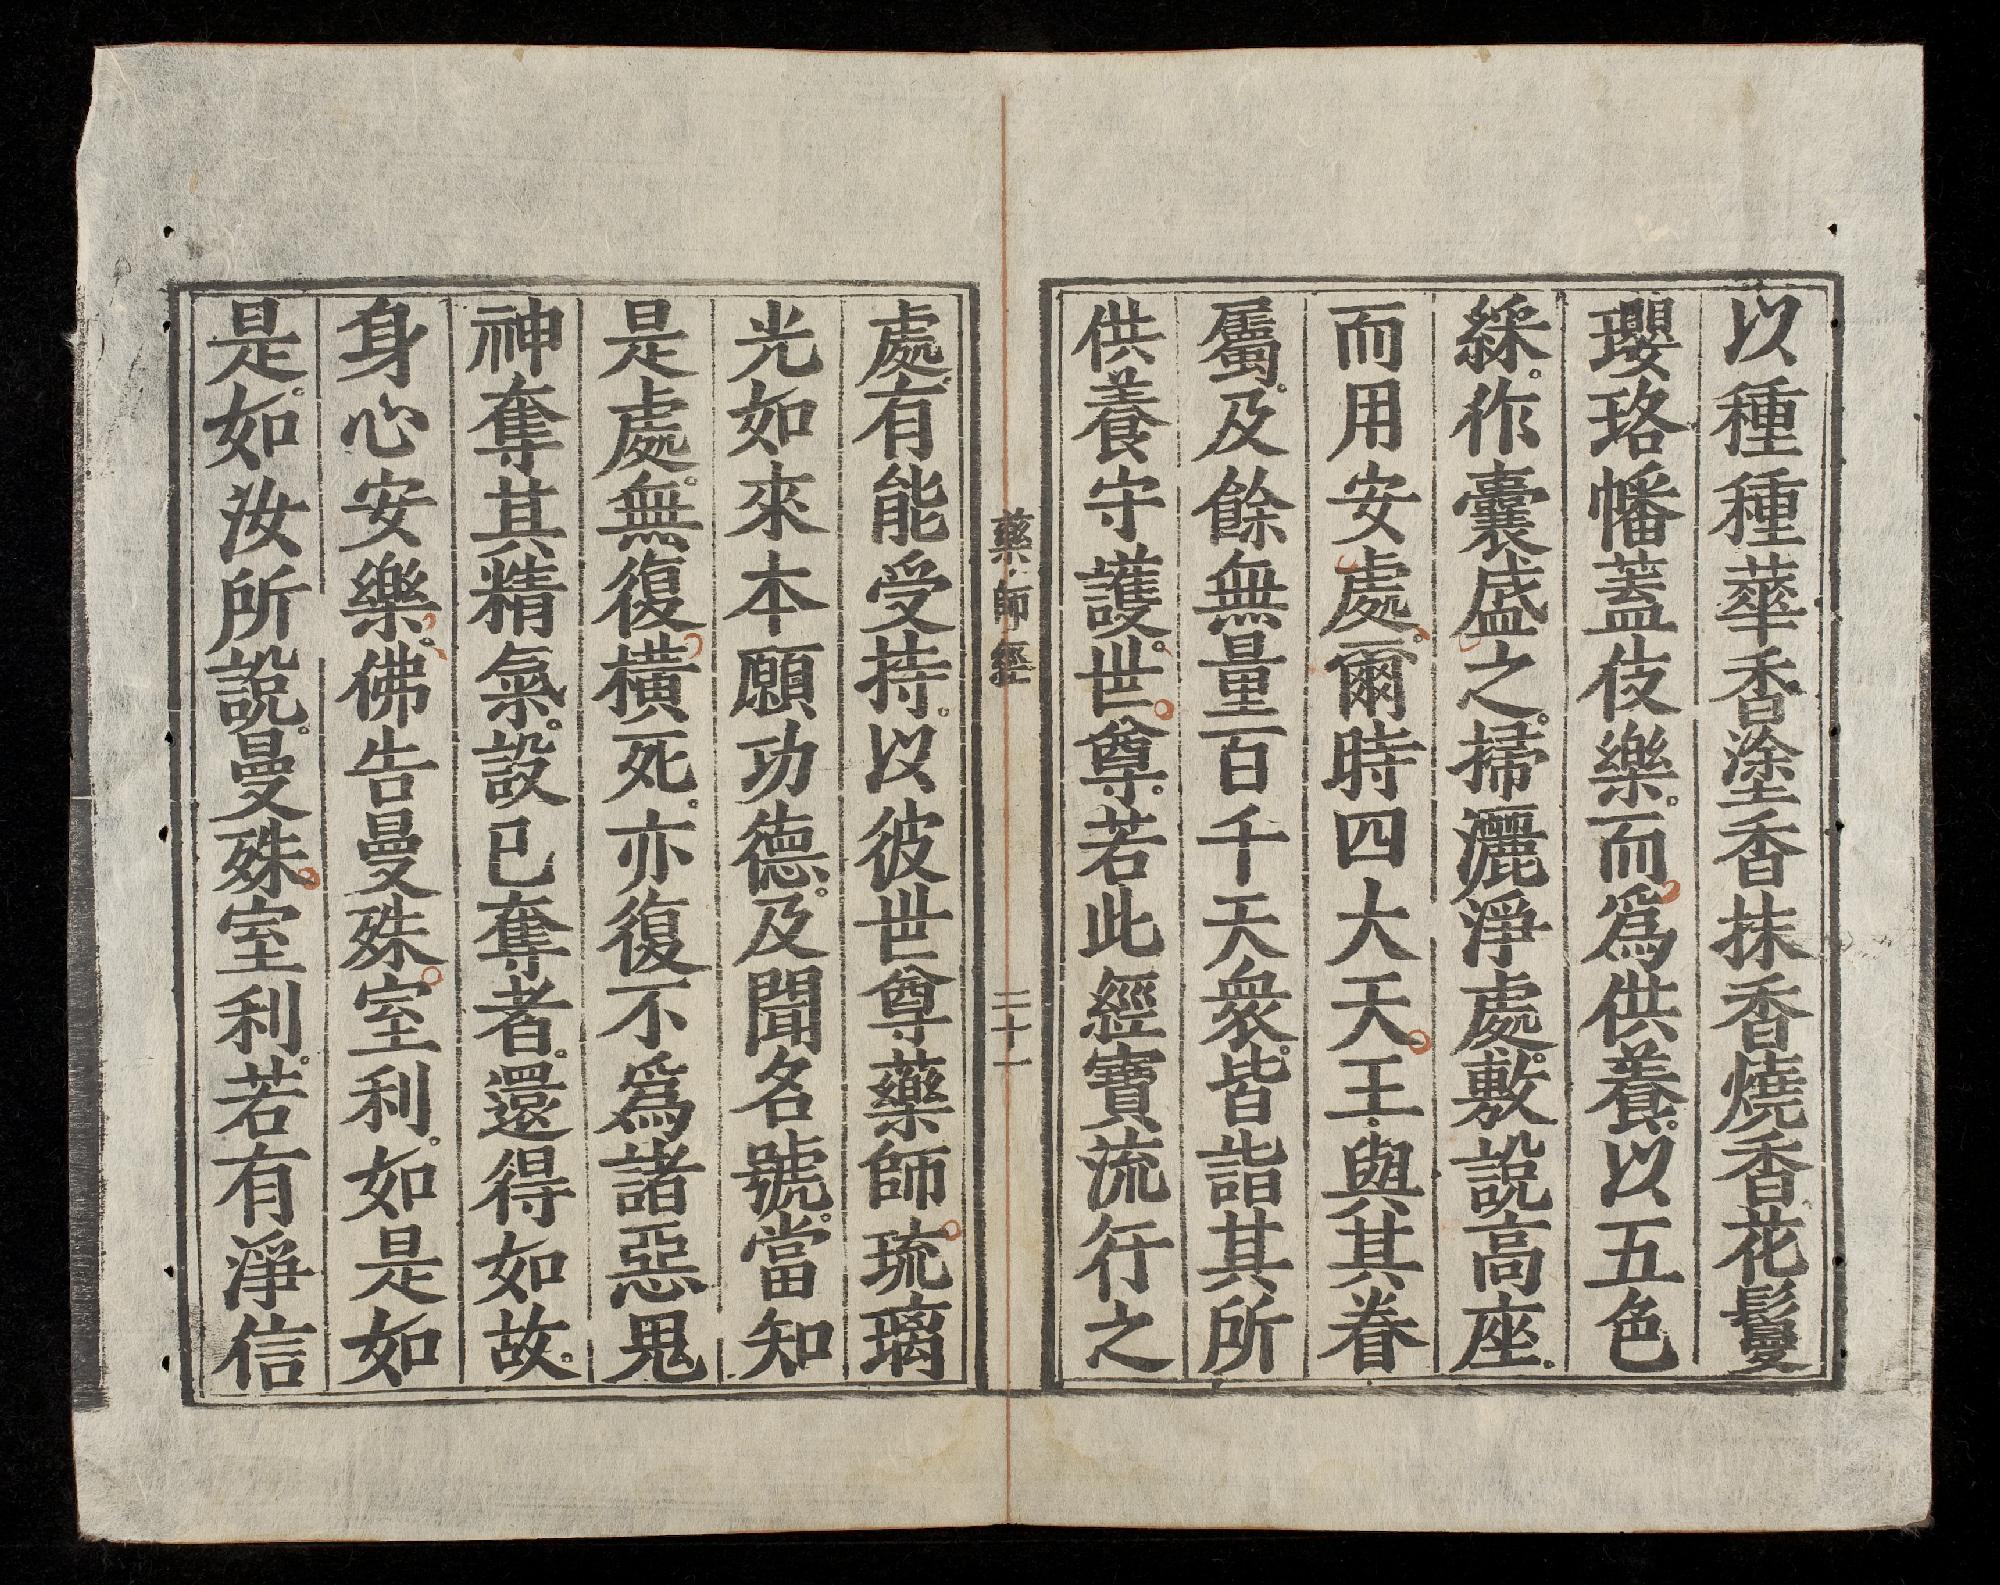 以種種華香塗香抹香燒香花鬘
瓔珞幡蓋伎樂。而爲供養。以五色
綵。作囊盛之。掃灑淨處。敷說高座。
而用安處。爾時四大天王。與其眷
屬。及餘無量百千天衆。皆詣其所
供養守護。世尊。若此經寶流行之
藥師經 二十一
處。有能受持。以彼世尊藥師琉璃
光如來本願功德。及聞名號。當知
是處。無復橫死。亦復不爲諸惡鬼
神奪其精氣。設已奪者。還得如故。
身心安樂。佛告曼殊室利。如是如
是。如汝所說。曼殊室利。若有淨信